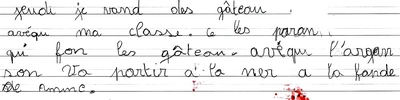 jeudi je vand des gâteau
avéqu ma classe. c les paran
qui fon les gâteau. avéqu l'argen
son va partir a la mer a la
de